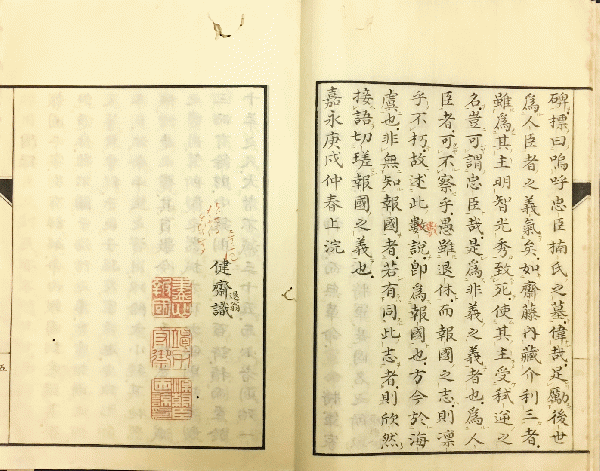 碑摽曰嗚呼忠臣楠氏之墓偉哉足勵後世
爲人臣者之義氣矣如齋藤内藏介利三者
雖爲其主明智光秀致死使其主受弑逆之
名豈可謂忠臣哉是爲非義之義者也爲人
臣者可不察乎愚雖退休而報國之志則凛
乎不朽故述此數說卽爲報國也方今於海
虞也非無知報國者若有同此志者則欣然
接語切瑳報國之義也
嘉永庚戌仲春上浣
健齋識
退翁